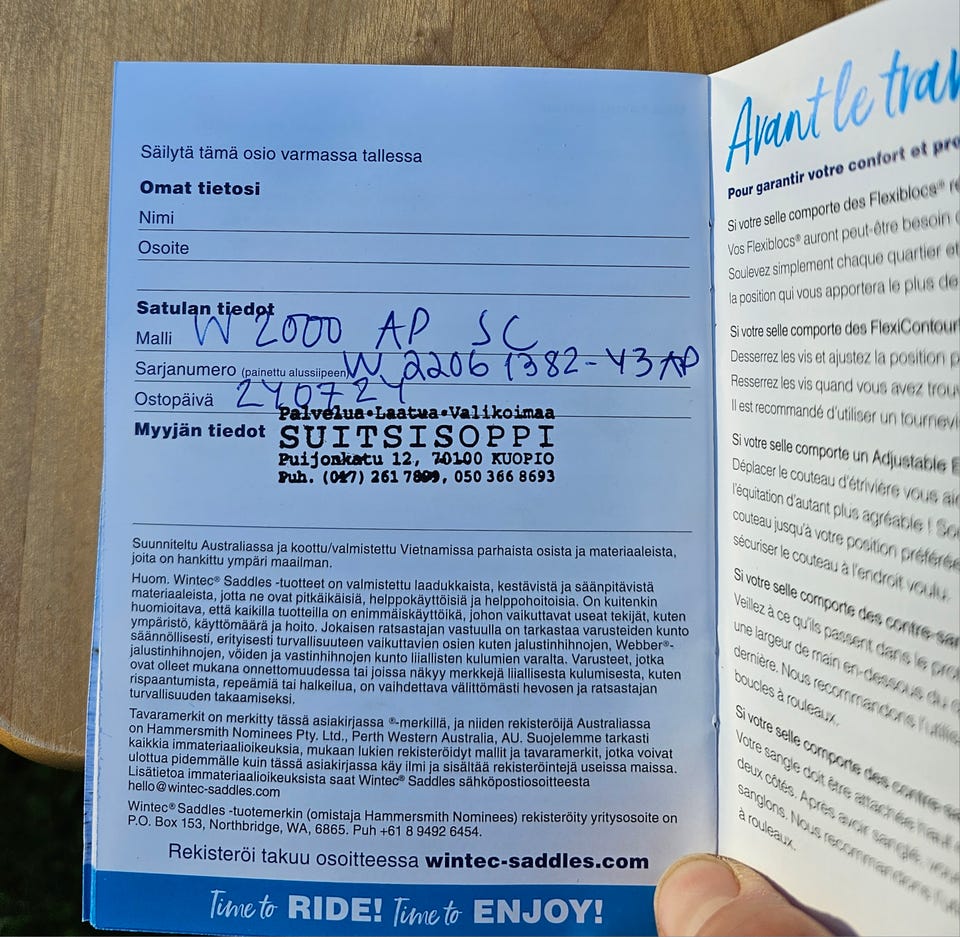 Säilytä tämä osio varmassa tallessa
Omat tietosi
Nimi
Osoite
Satulan tiedot
Malli W 2000 AP SC
Sarjanumero (painettu alussiipeen) W 22061382-43 AP
Ostopäivä 240724
Myyjän tiedot
Palvelua•Laatua•Valikoimaa
SUITSISOPPI
Puijonkatu 12, 70100 KUOPIO
Puh. (017) 261 7899, 050 366 8693
Suunniteltu Australiassa ja koottu/valmistettu Vietnamissa parhaista osista ja materiaaleista,
joita on hankittu ympäri maailman.
Huom. Wintec® Saddles -tuotteet on valmistettu laadukkaista, kestävistä ja säänpitävistä
materiaaleista, jotta ne ovat pitkäikäisiä, helppokäyttöisiä ja helppohoitoisia. On kuitenkin
huomioitava, että kaikilla tuotteilla on enimmäiskäyttöikä, johon vaikuttavat useat tekijät, kuten
ympäristö, käyttömäärä ja hoito. Jokaisen ratsastajan vastuulla on tarkastaa varusteiden kunto
säännöllisesti, erityisesti turvallisuuteen vaikuttavien osien kuten jalustinhihnojen, Webber®-
jalustinhihnojen, vöiden ja vastinhihnojen kunto liiallisten kulumien varalta. Varusteet, jotka
ovat olleet mukana onnettomuudessa tai joissa näkyy merkkejä liiallisesta kulumisesta, kuten
rispaantumista, repeämiä tai halkeilua, on vaihdettava välittömästi hevosen ja ratsastajan
turvallisuuden takaamiseksi.
Tavaramerkit on merkitty tässä asiakirjassa ®-merkillä, ja niiden rekisteröijä Australiassa
on Hammersmith Nominees Pty. Ltd., Perth Western Australia, AU. Suojelemme tarkasti
kaikkia immateriaalioikeuksia, mukaan lukien rekisteröidyt mallit ja tavaramerkit, jotka voivat
ulottua pidemmälle kuin tässä asiakirjassa käy ilmi ja sisältää rekisteröintejä useissa maissa.
Lisätietoa immateriaalioikeuksista saat Wintec® Saddles sähköpostiosoitteesta
hello@wintec-saddles.com
Wintec® Saddles -tuotemerkin (omistaja Hammersmith Nominees) rekisteröity yritysosoite on
P.O. Box 153, Northbridge, WA, 6865. Puh +61 8 9492 6454.
Rekisteröi takuu osoitteessa wintec-saddles.com
Time to RIDE! Time to ENJOY!
Avant le
Pour garantir votre confort et
Si votre selle comporte des Flexiblocs®
Vos Flexiblocs® auront peut-être besoin
Soulevez simplement chaque quartier et
la position qui vous apportera le plus de
Si votre selle comporte des
Desserrez les vis et ajustez la position
Resserrez les vis quand vous avez
Il est recommandé d'utiliser un
Si votre selle comporte un Adjustable
Déplacer le couteau d'étrivière vous
l'équitation d'autant plus agréable !
couteau jusqu'à votre position préférée
sécuriser le couteau à l'endroit voulu.
Si votre selle comporte des
Veillez à ce qu'ils passent dans le
une largeur de main en-dessous du
dernière. Nous recommandons
boucles à rouleaux.
Si votre selle comporte des
Votre sangle doit être attachée haut
deux côtés. Après avoir sanglé,
sanglons. Nous recommandons
à rouleaux.